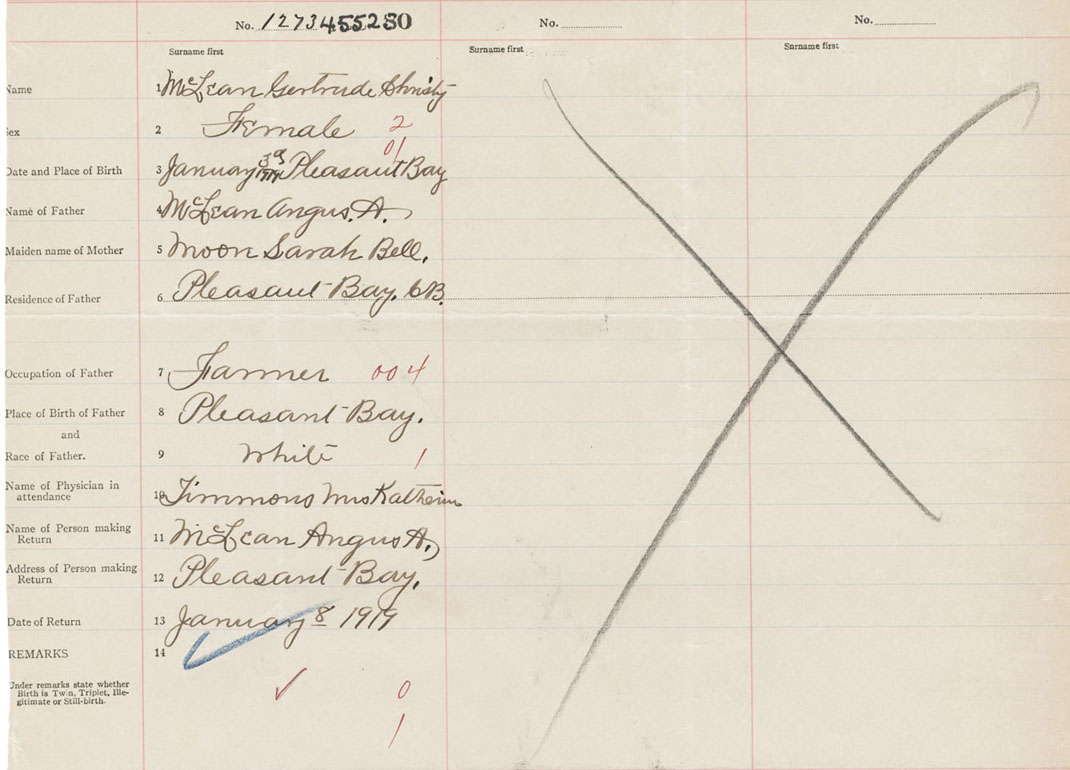 No. 1273455280
No.
No.
Surname first
Surname first
Surname first
Name 1 McLean Gertrude Christy
Sex 2 Female 2
01
Date and Place of Birth 3 January 3rd 1919 Pleasant Bay
Name of Father 4 McLean Angus. A.
Maiden name of Mother 5 Moon Sarah Bell.
Residence of Father 6 Pleasant Bay. C.B.
Occupation of Father 7 Farmer 004
Place of Birth of Father 8 Pleasant Bay.
and
Race of Father. 9 White 1
Name of Physician in
attendance 10 Timmons Mrs Katherin
Name of Person making
Return 11 McLean Angus A.
Address of Person making
Return 12 Pleasant Bay.
Date of Return 13 January 8 1919
REMARKS 14
Under remarks state whether
Birth is Twin, Triplet, Ille-
gitimate or Still-birth. 0
1